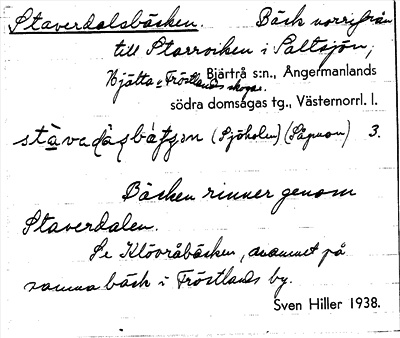 Staverdalsbäcken. Bäck norrifrån
till Storviken i Saltsjön,
Hjätta o Fröstlands skogar.
Bjärtrå s:n., Ångermanlands
södra domsagas tg., Västernorrl. l.
(Sjöholm) 3.
Bäcken rinner genom
Staverdalen.
Se Klövråbäcken, namnet på
samma bäck i Fröstlands by.
Sven Hiller 1938.